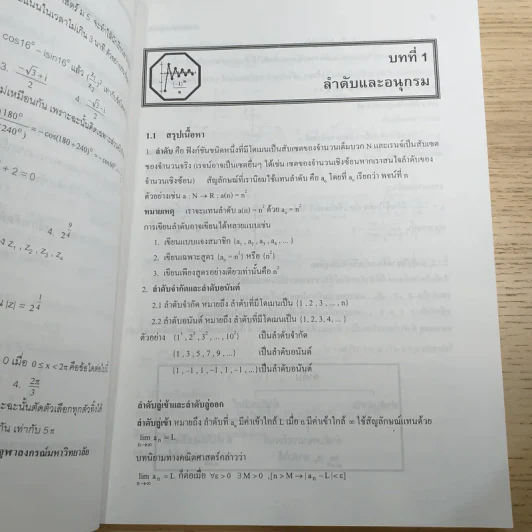 cos16° – isin16° แล้ว
3. –√3+1 / 2
4. –√3–1 / 2
= –cos(180+240)°
+ 2 = 0
4. 2^
z₁ , z₂ , z₃ , z₄
|z| = 2^(1/4)
0 เมื่อ 0 ≤ x < 2π คือข้อใดต่อไปนี้
4. 2π/3
ฉะนั้นตัดตัวเลือกทุกตัวที่ใช้
กัน เท่ากับ 5π
จุฬาลงกรณ์มหาวิทยาลัย
บทที่ 1
ลำดับและอนุกรม
1.1 สรุปเนื้อหา
1. ลำดับ คือ ฟังก์ชันชนิดหนึ่งที่มีโดเมนเป็นสับเซตของจำนวนเต็มบวก N และเรนจ์เป็นสับเซต
ของจำนวนจริง (เรจน์อาจเป็นเซตอื่นๆ ได้เช่น เซตของจำนวนเชิงซ้อนหากเราสนใจลำดับของ
จำนวนเชิงซ้อน) สัญลักษณ์ที่เรานิยมใช้แทนลำดับ คือ aₙ โดยที่ aₙ เรียกว่า พจน์ที่ n
ตัวอย่างเช่น a : N → R ; a(n) = n²
หมายเหตุ เราจะแทนลำดับ a(n) = n² ด้วย aₙ = n²
การเขียนลำดับอาจเขียนได้หลายแบบเช่น
1. เขียนแบบแจงสมาชิก {a₁ , a₂ , a₃ , a₄ , ... }
2. เขียนเฉพาะสูตร {aₙ = n²} หรือ {n²}
3. เขียนเพียงสูตรอย่างเดียวเท่านั้นคือ n²
2. ลำดับจำกัดและลำดับอนันต์
2.1 ลำดับจำกัด หมายถึง ลำดับที่มีโดเมนเป็น {1 , 2 , 3 , ... , n}
2.2 ลำดับอนันต์ หมายถึง ลำดับที่มีโดเมนเป็น {1, 2, 3, 4, ... }
ตัวอย่าง {1² , 2² , 3² , ... , 10²} เป็นลำดับจำกัด
{1 , 3 , 5 , 7 , 9 , ...} เป็นลำดับอนันต์
{1 , –1 , 1 , –1 , 1 , –1 , ...} เป็นลำดับอนันต์
ลำดับลู่เข้าและลำดับลู่ออก
ลำดับลู่เข้า หมายถึง ลำดับที่ aₙ มีค่าเข้าใกล้ L เมื่อ n มีค่าเข้าใกล้ ∞ ใช้สัญลักษณ์แทนด้วย
lim aₙ = L
n→∞
บทนิยามทางคณิตศาสตร์กล่าวว่า
lim aₙ = L ก็ต่อเมื่อ ∀ε > 0 ∃ M > 0 ,[n > M → | aₙ – L | < ε]
n→∞